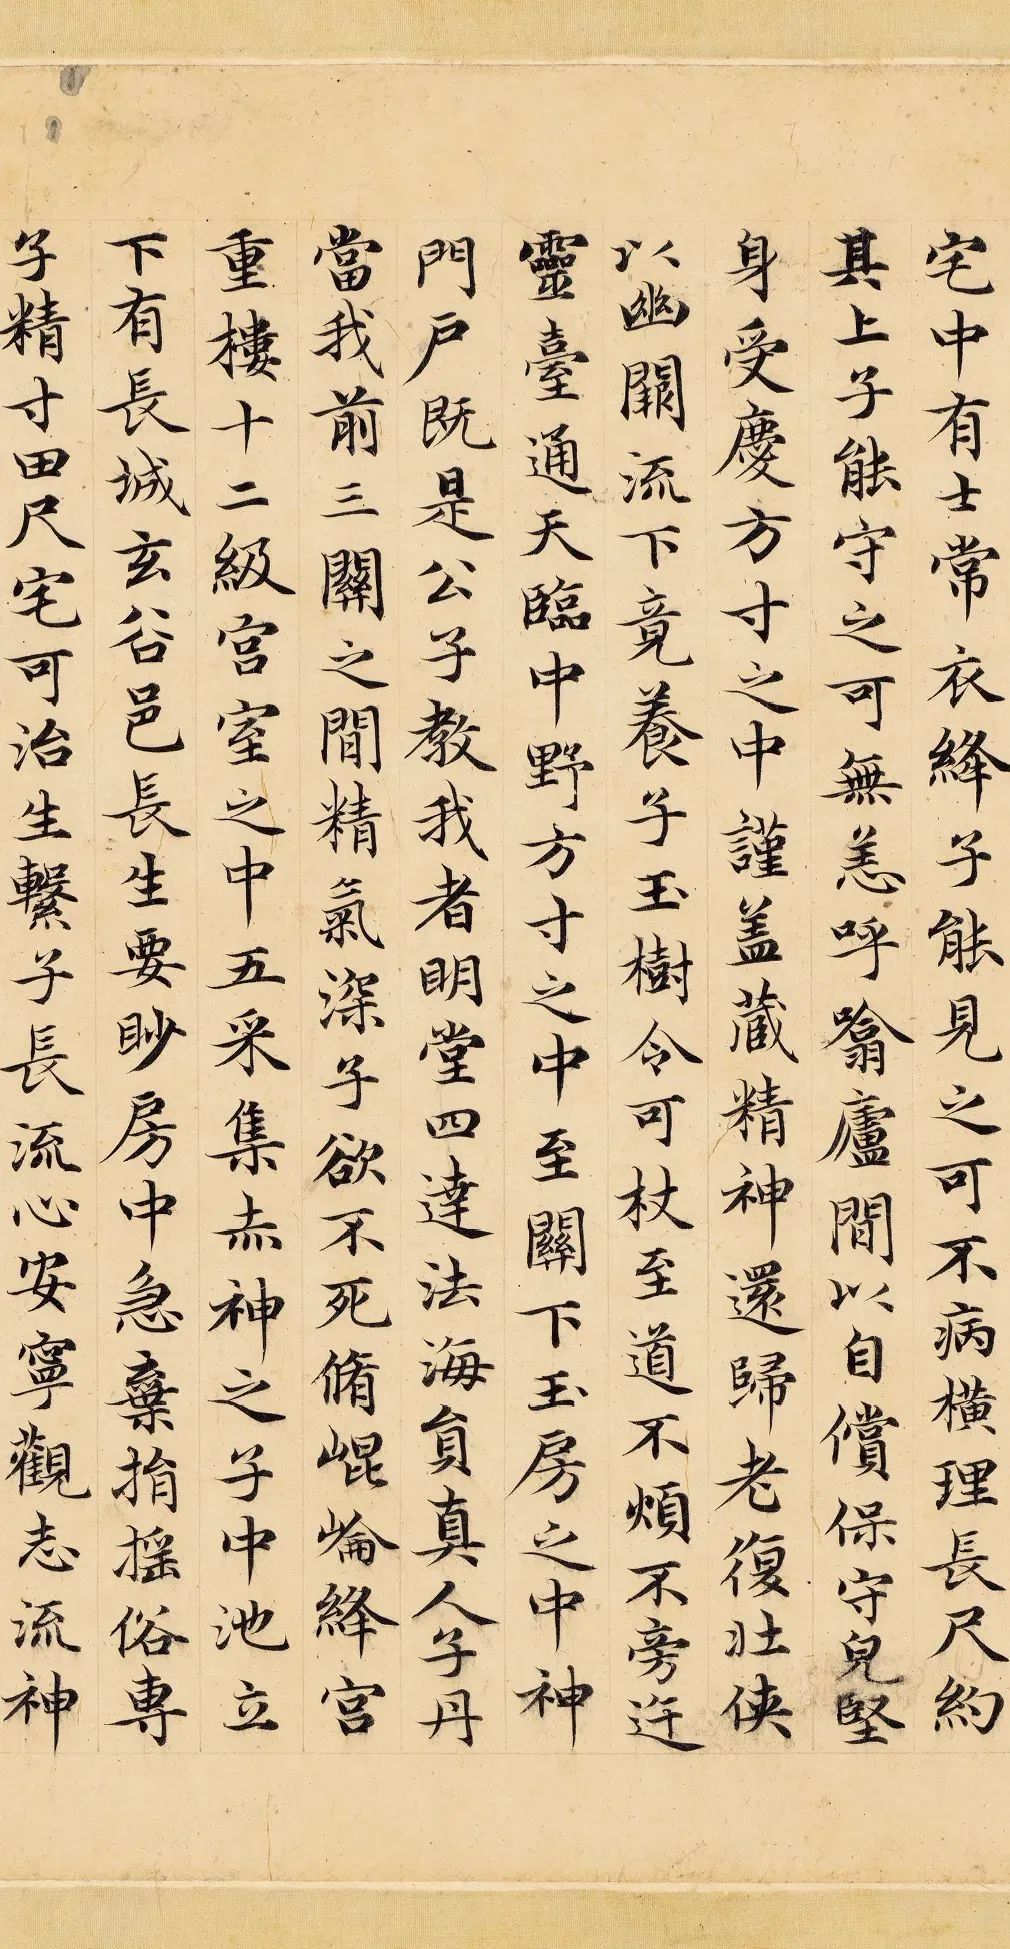 宅中有士常衣絳子能見之可不病橫理長尺約
其上子能守之可無恙呼噏廬間以自償保守皃堅
身受慶方寸之中謹盖蔵精神還歸老復壯俠
以幽闕流下竟養子玉樹令可杖至道不煩不旁迕
靈臺通天臨中野方寸之中至關下玉房之中神
門戶既是公子教我者明堂四達法海員真人子丹
當我前三關之間精氣深子欲不死脩崐崘絳宮
重樓十二級宮室之中五采集赤神之子中池立
下有長城玄谷邑長生要眇房中急棄捐搖俗専
子精寸田尺宅可治生繫子長流心安寧觀志流神